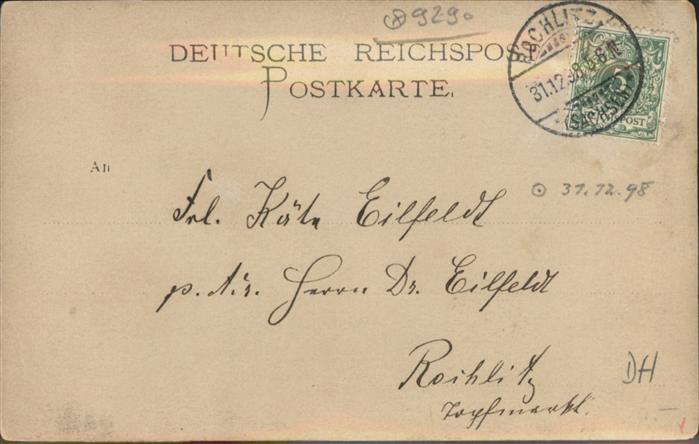 ⊗929.
DEUTSCHE REICHSPOST
POSTKARTE.
ROCHLITZ
31.12.98
SACHSEN
POST
An
⊙ 31.12.98
Frl. Käte Eilfeldt
p. Adr. Herrn Dr. Eilfeldt
Rochlitz
Topfmarkt.
DH